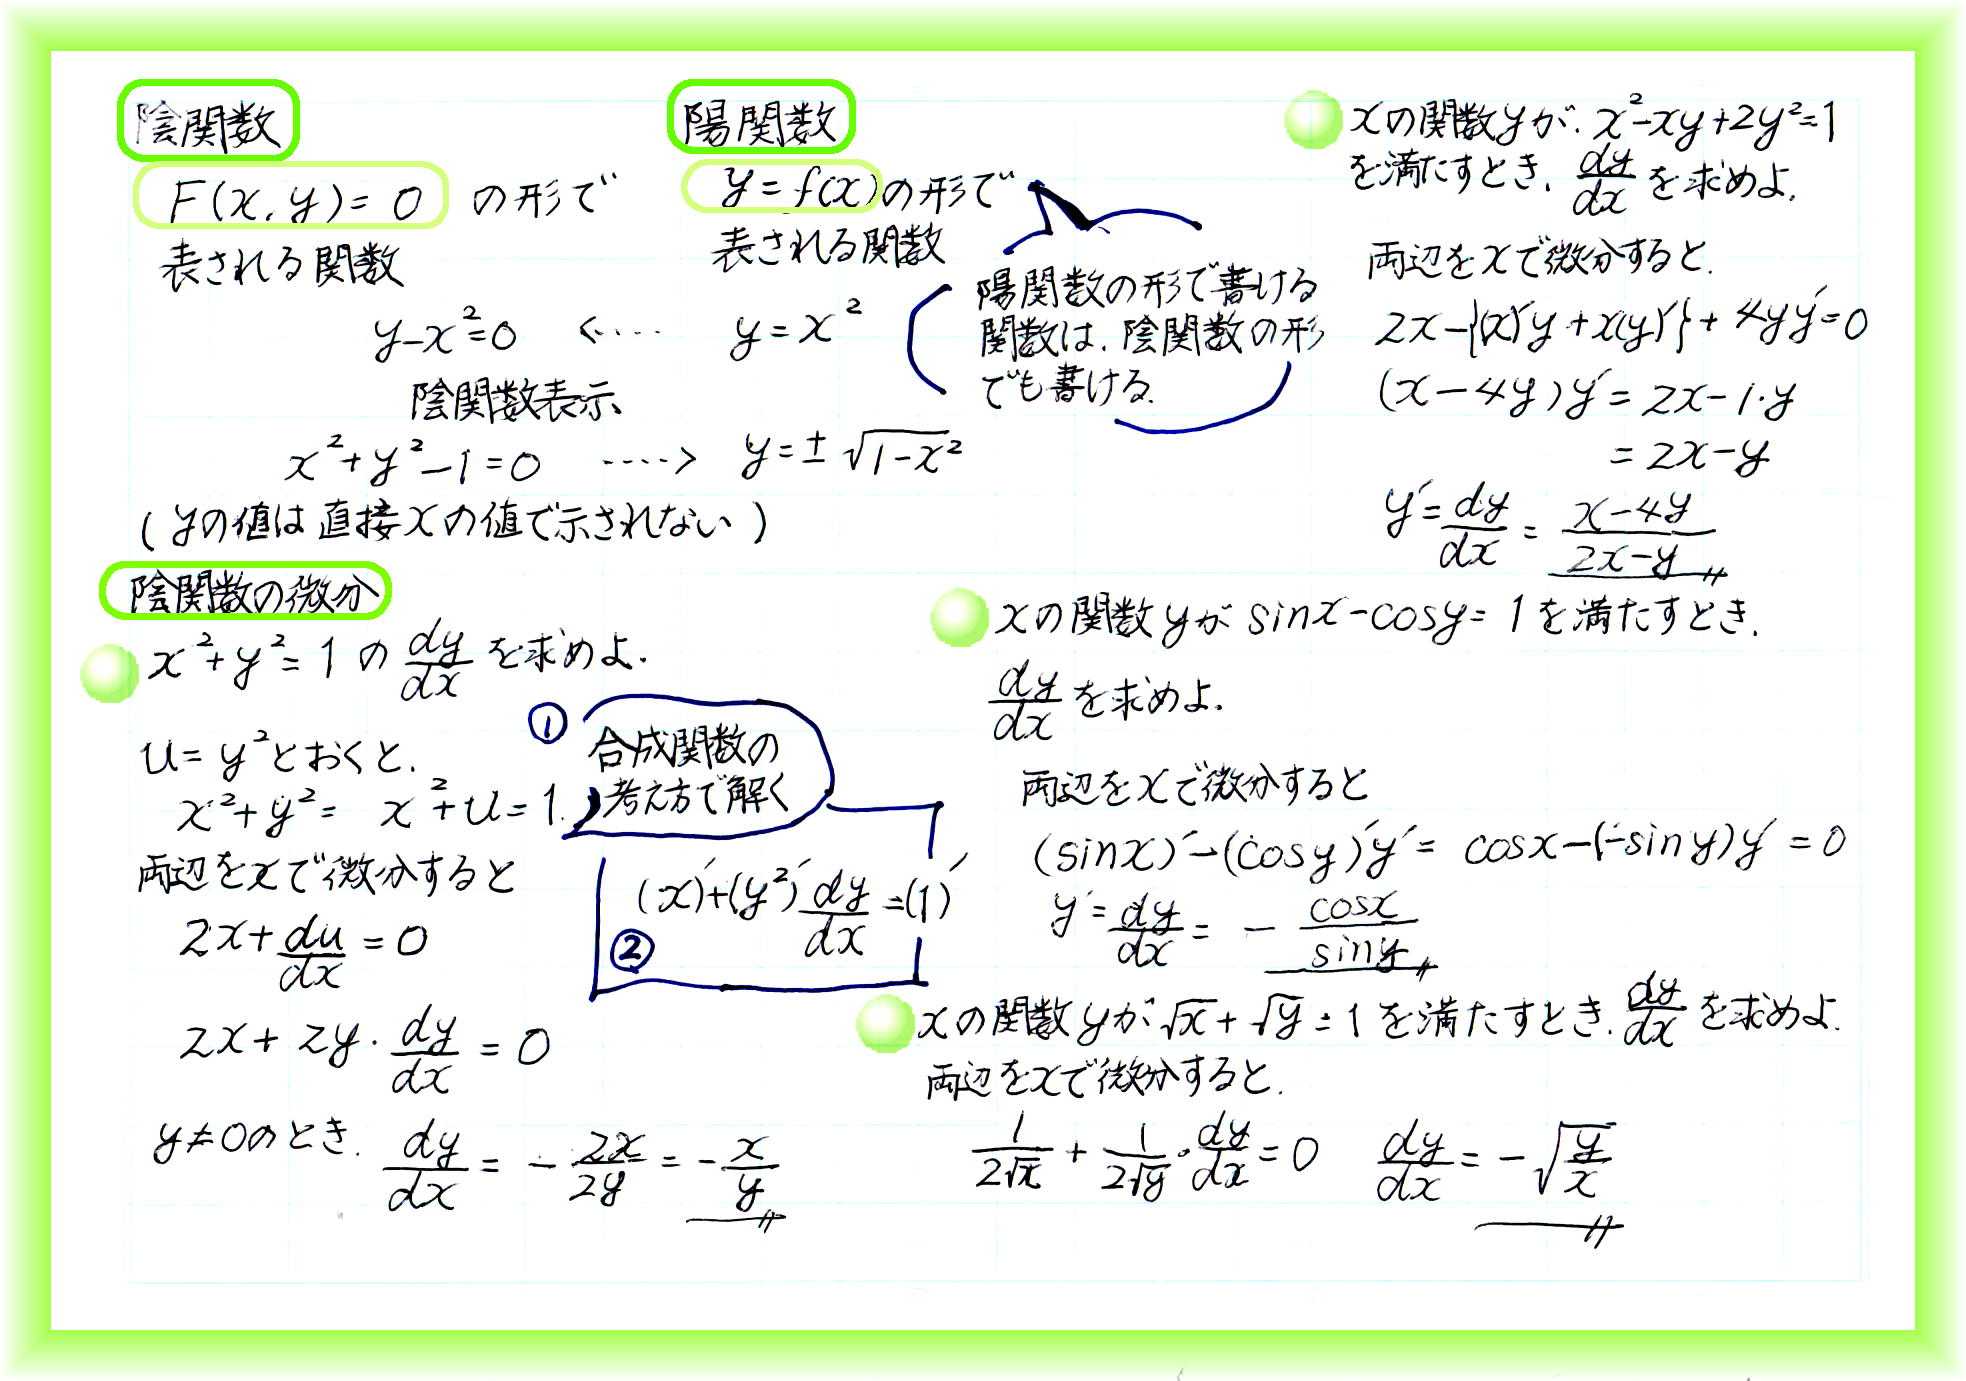 陰関数
F(x, y) = 0 の形で
表される関数
陽関数
y = f(x) の形で
表される関数
y - x² = 0 <···· y = x²
陰関数表示
x² + y² - 1 = 0 ····> y = ± √(1 - x²)
(yの値は直接xの値で示されない)
陽関数の形で書ける
関数は、陰関数の形
でも書ける.
陰関数の微分
x² + y² = 1 の dy/dx を求めよ.
u = y² とおくと.
x² + y² = x² + u = 1.
両辺をxで微分すると
2x + du/dx = 0
2x + 2y · dy/dx = 0
y ≠ 0のとき. dy/dx = - 2x/2y = - x/y
① 合成関数の
考え方で解く
(x)' + (y²)' dy/dx = (1)'
②
xの関数yが. x² - xy + 2y² = 1
を満たすとき. dy/dx を求めよ.
両辺をxで微分すると.
2x - {(x)'y + x(y)'} + 4yy' = 0
(x - 4y)y' = 2x - 1·y
= 2x - y
y' = dy/dx = (x - 4y)/(2x - y)
xの関数yが sinx - cosy = 1 を満たすとき.
dy/dx を求めよ.
両辺をxで微分すると
(sinx)' - (cosy)'y' = cosx - (-siny)y' = 0
y' = dy/dx = - cosx/siny
xの関数yが √x + √y = 1 を満たすとき. dy/dx を求めよ.
両辺をxで微分すると.
1/(2√x) + 1/(2√y) · dy/dx = 0 dy/dx = - √(y/x)